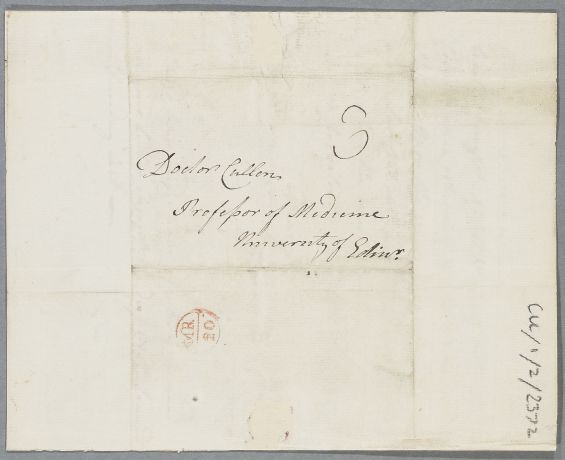 3
Doctor Cullen
Professor of Medicine
University of Edinr.
MR
20
CUL/1/2/2372